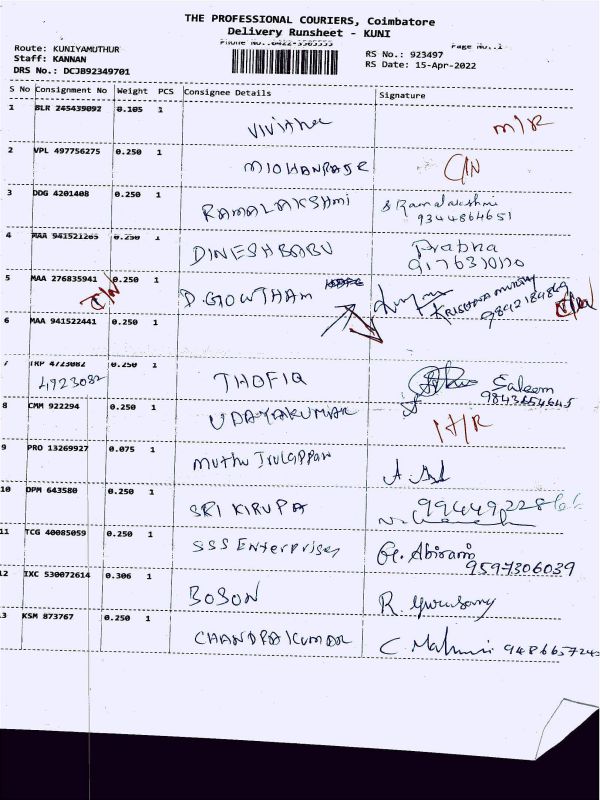 THE PROFESSIONAL COURIERS, Coimbatore
Delivery Runsheet - KUNI
Phone No.:0422-3585555 Page No.:1
Route: KUNIYAMUTHUR RS No.: 923497
Staff: KANNAN RS Date: 15-Apr-2022
DRS No.: DCJB92349701
S No Consignment No Weight PCS Consignee Details Signature
1 BLR 245439092 0.105 1 M/R
2 VPL 497756275 0.250 1 C/N
3 DDG 4201408 0.250 1 RAMALAKSHMI S Ramalakshmi
9344864651
4 MAA 941521265 0.250 1 DINESHBABU Prabha
5 MAA 276835941 0.250 1 D.GIOWTHAM KRISHNA MURTHY
6 MAA 941522441 0.250 1
7 TRP 4723082 0.250 1 THOFIQ Saleem
4923082 9843654645
8 CMM 922294 0.250 1 UDAYAKUMAR
9 PRO 13269927 0.075 1 Muthu Irulappan
10 DPM 643580 0.250 1 SRI KIRUPA
11 TCG 40085059 0.250 1 SSS Enterprises G. Abirami
9597306039
12 IXC 530072614 0.306 1 BOSON R. Gurusamy
13 KSM 873767 0.250 1 CHANDRAKUMAR